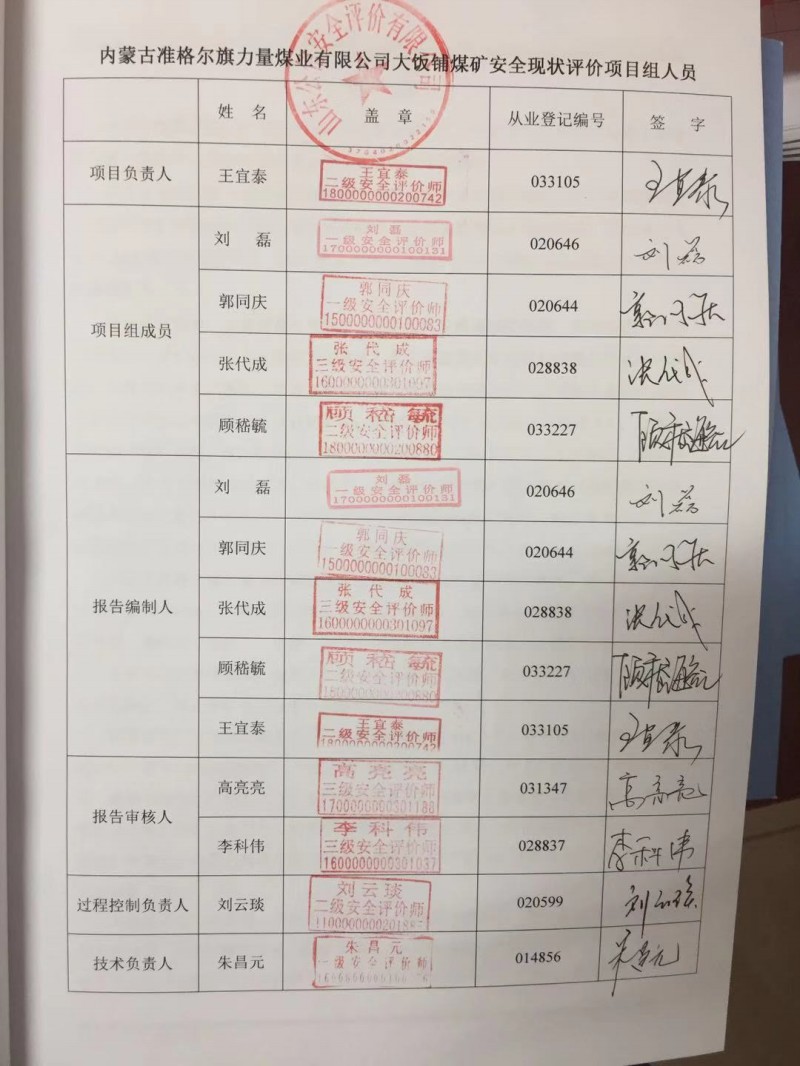 内蒙古准格尔旗力量煤业有限公司大饭铺煤矿安全现状评价项目组人员
安全评价有限公司
姓 名 盖 章 从业登记编号 签 字
项目负责人 王宜泰 033105 王宜泰
王宜泰
二级安全评价师
1800000000200742
项目组成员
刘 磊 020646 刘磊
刘 磊
一级安全评价师
1700000000100131
郭同庆 020644 郭同庆
郭同庆
一级安全评价师
1500000000100083
张代成 028838 张代成
张 代 成
三级安全评价师
1600000000301097
顾嵇毓 033227 顾嵇毓
顾 嵇 毓
二级安全评价师
1800000000200880
报告编制人
刘 磊 020646 刘磊
刘 磊
一级安全评价师
1700000000100131
郭同庆 020644 郭同庆
郭同庆
一级安全评价师
1500000000100083
张代成 028838 张代成
张 代 成
三级安全评价师
1600000000301097
顾嵇毓 033227 顾嵇毓
顾 嵇 毓
二级安全评价师
1800000000200880
王宜泰 033105 王宜泰
王宜泰
二级安全评价师
1800000000200742
报告审核人
高亮亮 031347 高亮亮
高 亮 亮
三级安全评价师
1700000000301188
李科伟 028837 李科伟
李 科 伟
三级安全评价师
1600000000301037
过程控制负责人 刘云琰 020599 刘云琰
刘云琰
二级安全评价师
技术负责人 朱昌元 014856 朱昌元
朱 昌 元
一级安全评价师